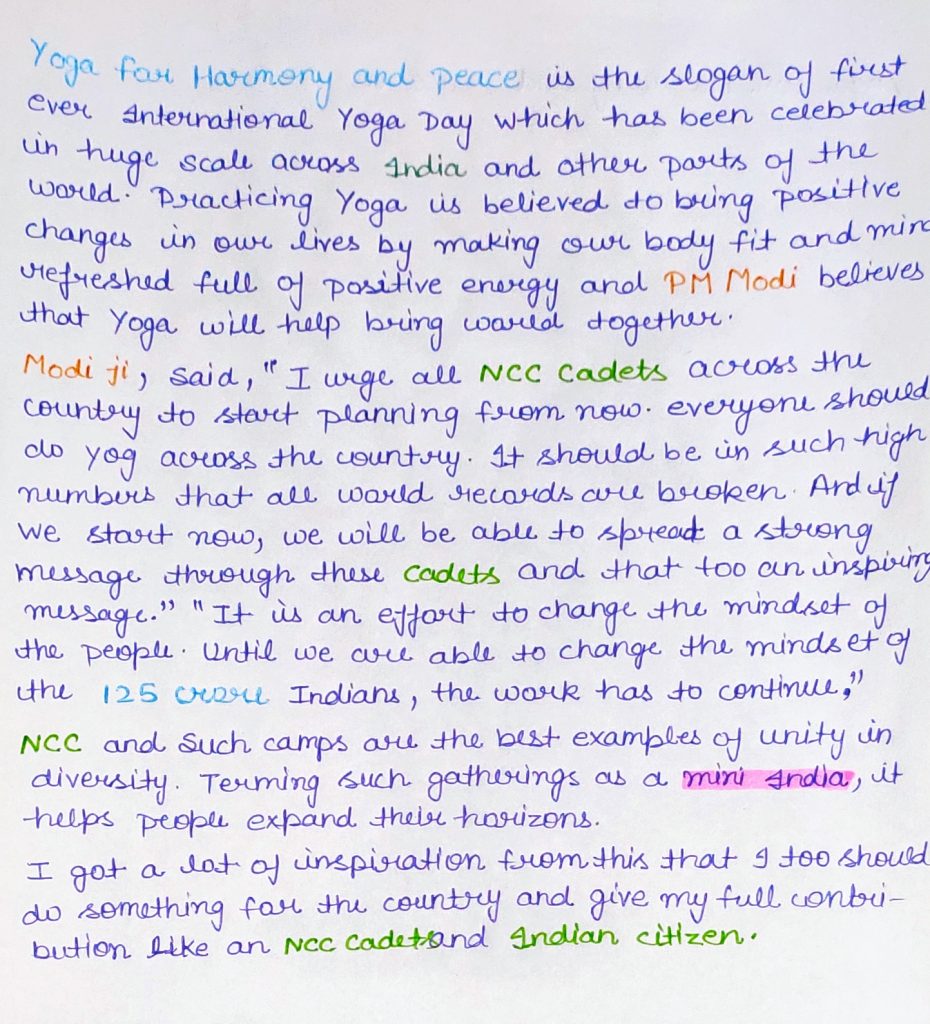 Yoga for Harmony and peace is the slogan of first
ever International Yoga Day which has been celebrated
in huge scale across India and other parts of the
world. Practicing Yoga is believed to bring positive
changes in our lives by making our body fit and mind
refreshed full of positive energy and PM Modi believes
that Yoga will help bring world together.
Modi ji, said, "I urge all NCC Cadets across the
country to start planning from now. everyone should
do yog across the country. It should be in such high
numbers that all world records are broken. And if
we start now, we will be able to spread a strong
message through these cadets and that too an inspiring
message." "It is an effort to change the mindset of
the people. Until we are able to change the mindset of
the 125 crore Indians, the work has to continue,"
NCC and such camps are the best examples of unity in
diversity. Terming such gatherings as a mini India, it
helps people expand their horizons.
I got a lot of inspiration from this that I too should
do something for the country and give my full contri-
bution like an NCC Cadet and Indian citizen.